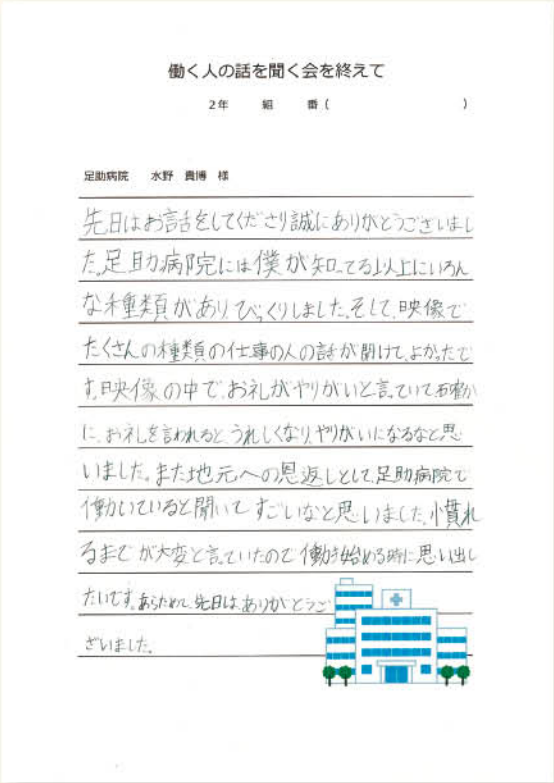 働く人の話を聞く会を終えて
2年　組　番（　）
足助病院　水野　貴博　様
先日はお話をしてくださり誠にありがとうございまし
た。足助病院には僕が知ってる以上にいろん
な種類があり、びっくりしました。そして、映像で
たくさんの種類の仕事の人の話が聞けて、よかったで
す。映像の中で、お礼がやりがいと言っていて、確か
に、お礼を言われると、うれしくなり、やりがいになるなと思
いました。また地元への恩返しとして、足助病院で
働いていると聞いて すごいなと思いました。慣れ
るまでが大変と言っていたので 働き始める時に思い出し
たいです。あらためて、先日は、ありがとうご
ざいました。